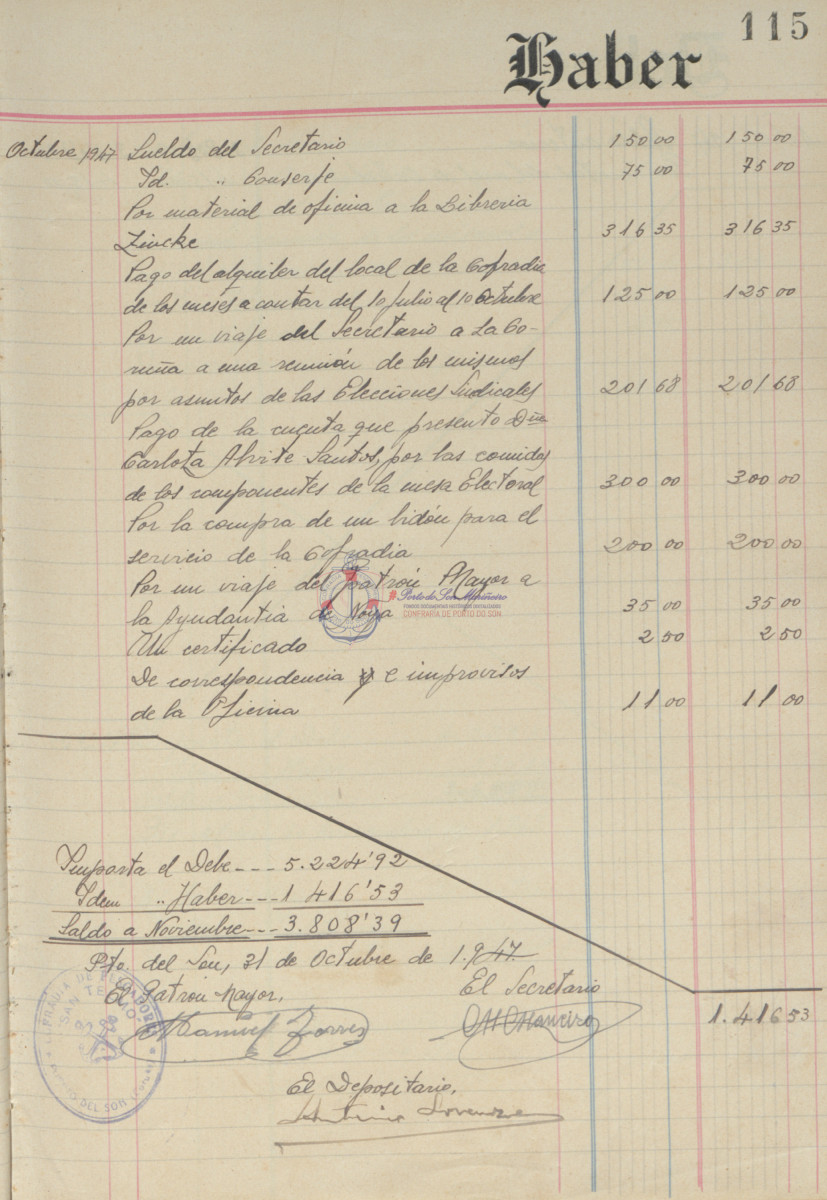 115
Haber
Octubre 1947 Sueldo del Secretario 150 00 150 00
Id. " Conserje 75 00 75 00
Por material de oficina a la Libreria
Zincke 316 35 316 35
Pago del alquiler del local de la Cofradia
de los meses a contar del 10 Julio al 10 Octubre 125 00 125 00
Por un viaje del Secretario a La Co-
ruña a una reunión de los mismos
por asuntos de las Elecciones Sindicales 201 68 201 68
Pago de la cuenta que presento Dña
Carlota Alvite Santos, por las comidas
de los componentes de la mesa Electoral 300 00 300 00
Por la compra de un bidón para el
servicio de la Cofradia 200 00 200 00
Por un viaje del patrón Mayor a
la Ayudantia de Noya 35 00 35 00
Un certificado 2 50 2 50
De correspondencia y e improvisos
de la Oficina 11 00 11 00
Porto do Son Mariñeiro
FONDOS DOCUMENTAIS HISTÓRICOS DIXITALIZADOS
CONFRARÍA DE PORTO DO SON
Importa el Debe --- 5.224'92
Idem " Haber --- 1 416'53
Saldo a Noviembre --- 3.808'39
Pto. del Son, 31 de Octubre de 1.947
El Patron Mayor, El Secretario
1.416 53
Manuel Torres
El Depositario,
Antonio Lorenzo
SAN TELMO